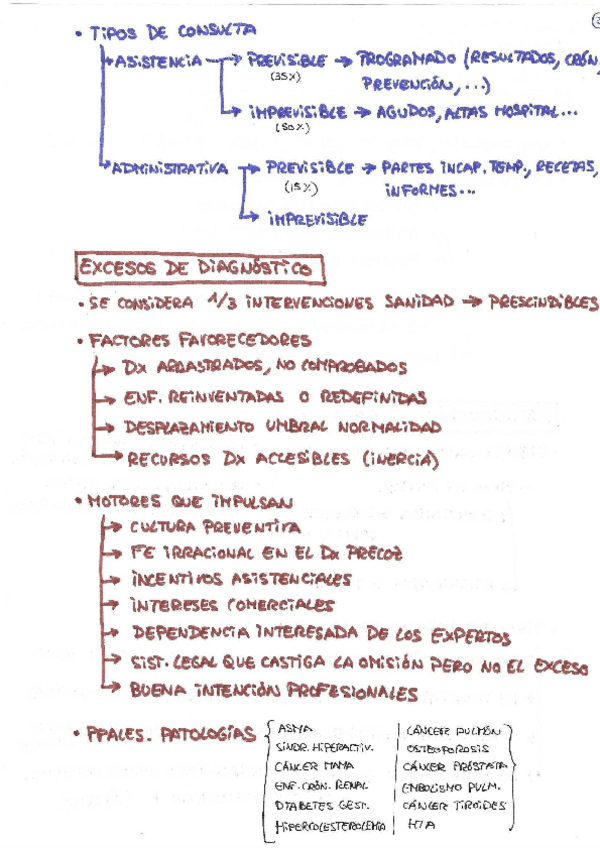 • TIPOS DE CONSULTA
ASISTENCIA → PREVISIBLE → PROGRAMADO (RESULTADOS, CRÓN,
(35%) PREVENCIÓN, ...)
IMPREVISIBLE → AGUDOS, ALTAS HOSPITAL...
(50%)
ADMINISTRATIVA → PREVISIBLE → PARTES INCAP. TEMP., RECETAS,
(15%) INFORMES...
IMPREVISIBLE
EXCESOS DE DIAGNÓSTICO
• SE CONSIDERA 1/3 INTERVENCIONES SANIDAD → PRESCINDIBLES
• FACTORES FAVORECEDORES
→ DX ARRASTRADOS, NO COMPROBADOS
→ ENF. REINVENTADAS O REDEFINIDAS
→ DESPLAZAMIENTO UMBRAL NORMALIDAD
→ RECURSOS DX ACCESIBLES (INERCIA)
• MOTORES QUE IMPULSAN
→ CULTURA PREVENTIVA
→ FE IRRACIONAL EN EL DX PRECOZ
→ INCENTIVOS ASISTENCIALES
→ INTERESES COMERCIALES
→ DEPENDENCIA INTERESADA DE LOS EXPERTOS
→ SIST. LEGAL QUE CASTIGA LA OMISIÓN PERO NO EL EXCESO
→ BUENA INTENCIÓN PROFESIONALES
• PPALES. PATOLOGÍAS
ASMA
SÍNDR. HIPERACTIV.
CÁNCER MAMA
ENF. CRÓN. RENAL
DIABETES GEST.
HIPERCOLESTEROLEMIA
CÁNCER PULMÓN
OSTEOPOROSIS
CÁNCER PRÓSTATA
EMBOLISMO PULM.
CÁNCER TIROIDES
HTA